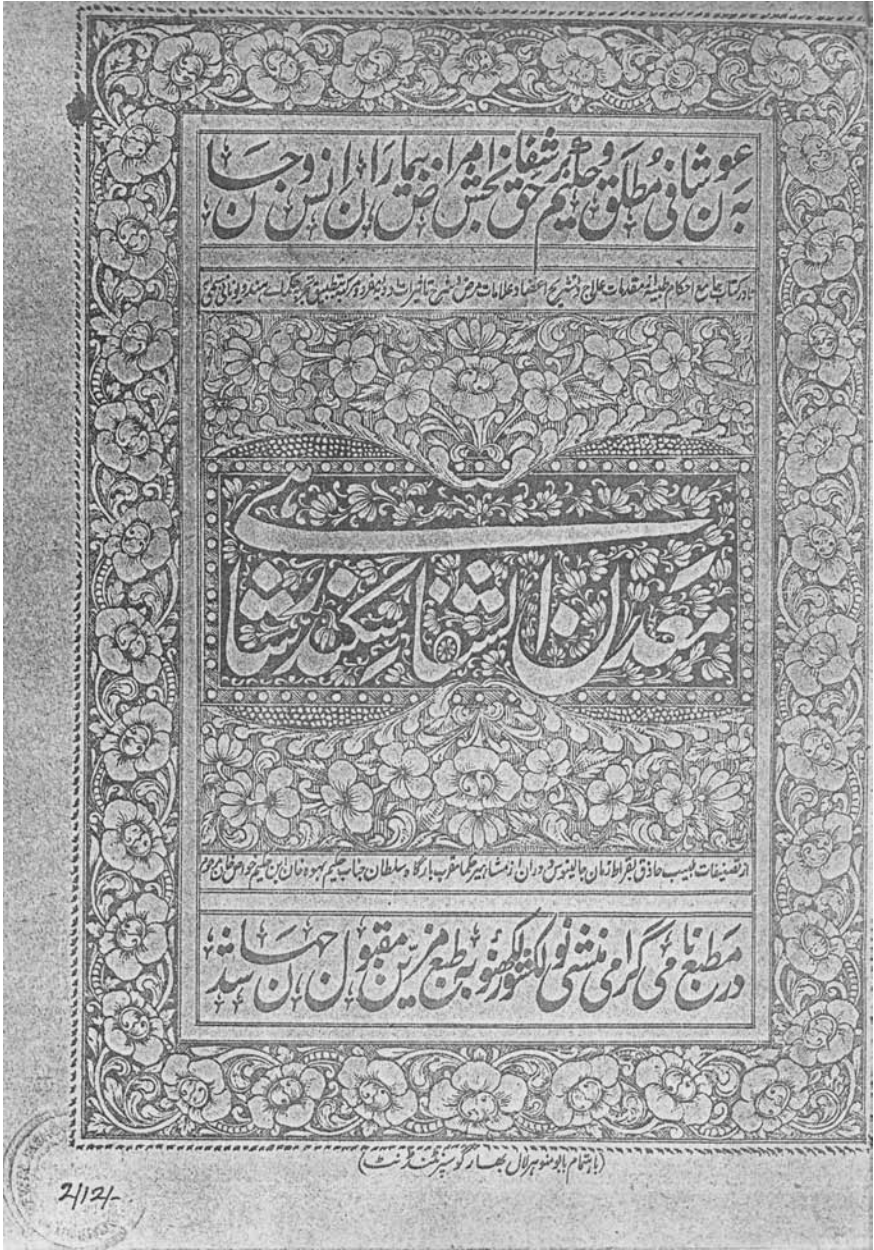 به عون شافی مطلق و حکیم برحق شفا بخش امراض بیماران انس و جان
نادر کتاب جامع احکام طبیه مقدمات علاج و تشریح اعضا و علامات مرض و شرح تاثیرات ادویه مفرده و مرکبه تطبیق
معدن الشفاء سکندرشاهی
از تصنیفات طبیب حاذق بقراط زمان جالینوس دوران از مشاهیر حکما مقرب بارگاه سلطان جناب حکیم بهوه خان ابن حکیم خواص خان مرحوم
در مطبع نامی گرامی منشی نولکشور لکهنو به طبع مزین مقبول جهان شد
(باهتمام بابو منوهر لال بھارگو سپرنٹنڈنٹ)
2/12/-